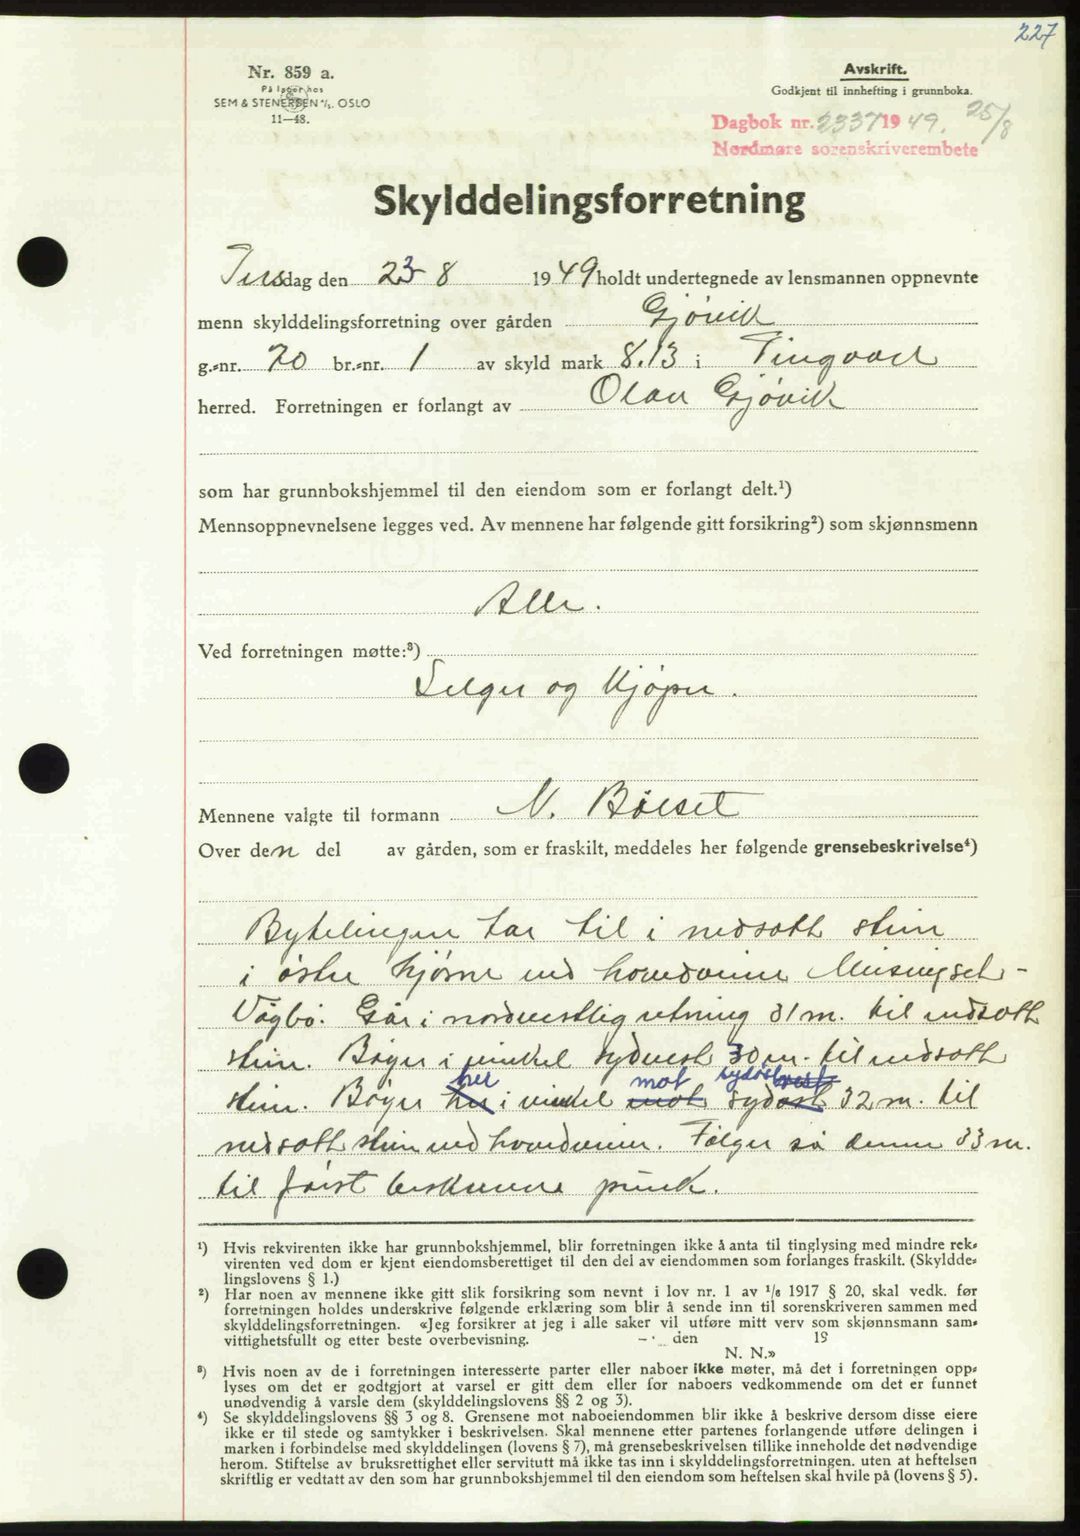 227
Nr. 859 a.
På lager hos
SEM & STENERSEN A/S. OSLO
11—48.
Avskrift.
Godkjent til innhefting i grunnboka.
Dagbok nr. 2337 1949. 25/8
Nordmøre sorenskriverembete
Skylddelingsforretning
Tirsdag den 23-8 1949 holdt undertegnede av lensmannen oppnevnte
menn skylddelingsforretning over gården Gjøvik
g.-nr. 70 br.-nr. 1 av skyld mark 8.13 i Tingvoll
herred. Forretningen er forlangt av Olav Gjøvik
som har grunnbokshjemmel til den eiendom som er forlangt delt.¹)
Mennsoppnevnelsene legges ved. Av mennene har følgende gitt forsikring²) som skjønnsmenn
Alle.
Ved forretningen møtte:³)
Selger og Kjøper.
Mennene valgte til formann N. Bølset
Over den del av gården, som er fraskilt, meddeles her følgende grensebeskrivelse⁴)
Bytelingen tar til i nedsatt stein
i østre hjørne ved hovedveien Meisingset-
Vågbø. Går i nordvestlig retning 31 m. til nedsatt
stein. Bøyer i vinkel sydvest 30 m. til nedsatt
her mot sydøst vest
stein. Bøyer her i vinkel mot sydøst 32 m. til
nedsatt stein ved hovedveien. Følger så denne 33 m.
til først beskrevne punk.
¹) Hvis rekvirenten ikke har grunnbokshjemmel, blir forretningen ikke å anta til tinglysing med mindre rek-
virenten ved dom er kjent eiendomsberettiget til den del av eiendommen som forlanges fraskilt. (Skyldde-
lingslovens § 1.)
²) Har noen av mennene ikke gitt slik forsikring som nevnt i lov nr. 1 av 1/6 1917 § 20, skal vedk. før
forretningen holdes underskrive følgende erklæring som blir å sende inn til sorenskriveren sammen med
skylddelingsforretningen. «Jeg forsikrer at jeg i alle saker vil utføre mitt verv som skjønnsmann sam-
vittighetsfullt og etter beste overbevisning. den 19
N. N.»
³) Hvis noen av de i forretningen interesserte parter eller naboer ikke møter, må det i forretningen opp-
lyses om det er godtgjort at varsel er gitt dem eller for naboers vedkommende om det er funnet
unødvendig å varsle dem (skylddelingslovens §§ 2 og 3).
⁴) Se skylddelingslovens §§ 3 og 8. Grensene mot naboeiendommen blir ikke å beskrive dersom disse eiere
ikke er til stede og samtykker i beskrivelsen. Skal mennene etter partenes forlangende utføre delingen i
marken i forbindelse med skylddelingen (lovens § 7), må grensebeskrivelsen tillike inneholde det nødvendige
herom. Stiftelse av bruksrettighet eller servitutt må ikke tas inn i skylddelingsforretningen. uten at heftelsen
skriftlig er vedtatt av den som har grunnbokshjemmel til den eiendom som heftelsen skal hvile på (lovens § 5).